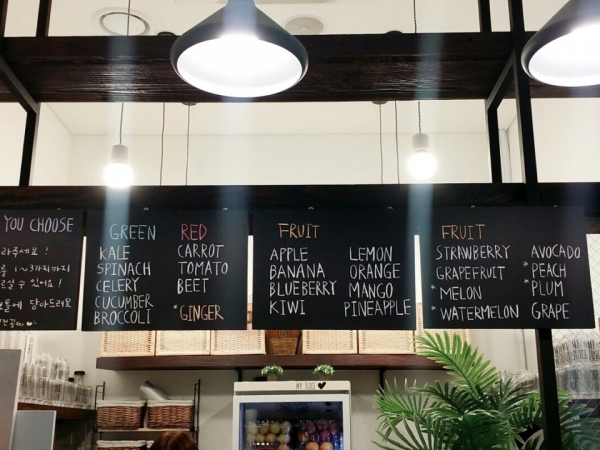 YOU CHOOSE
라주세요!
1~3가지까지
수 있어요!
보틀에 담아드려요
GREEN
KALE
SPINACH
CELERY
CUCUMBER
BROCCOLI
RED
CARROT
TOMATO
BEET
*GINGER
FRUIT
APPLE
BANANA
BLUEBERRY
KIWI
LEMON
ORANGE
MANGO
PINEAPPLE
FRUIT
STRAWBERRY
GRAPEFRUIT
*MELON
*WATERMELON
AVOCADO
*PEACH
*PLUM
GRAPE
MY JUICE ♥